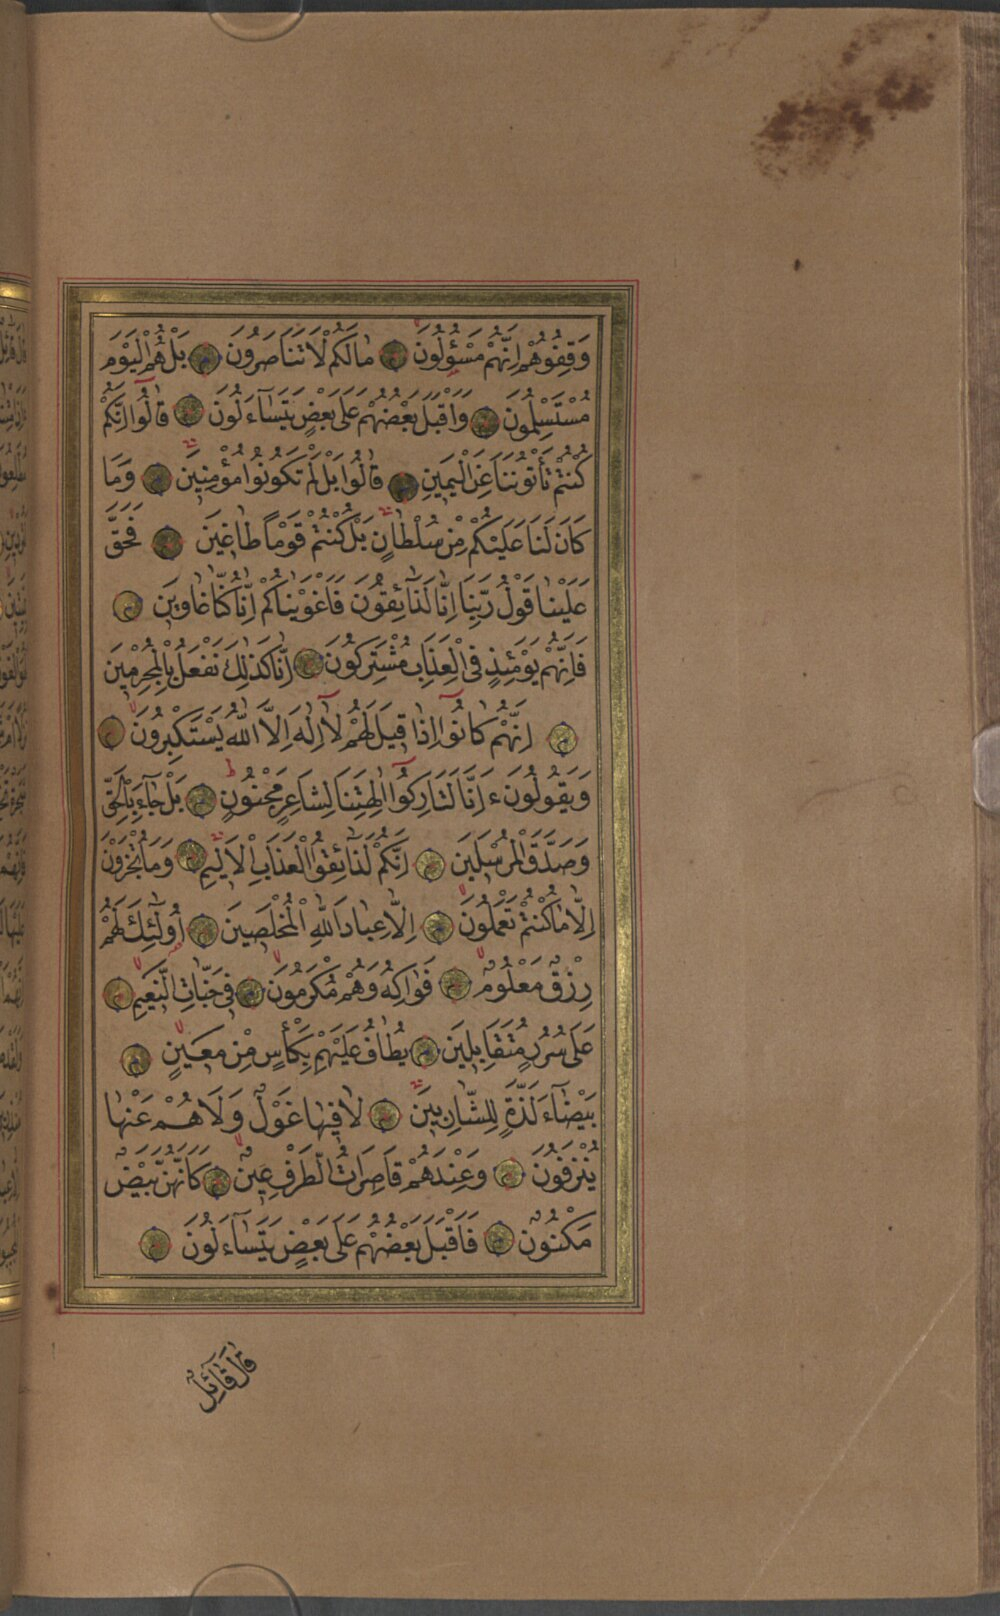 وَقِفُوهُمْ اِنَّهُمْ مَسْؤُلُونَ ۝ مَالَكُمْ لَا تَنَاصَرُونَ ۝ بَلْ هُمُ الْيَوْمَ
مُسْتَسْلِمُونَ ۝ وَاَقْبَلَ بَعْضُهُمْ عَلٰى بَعْضٍ يَتَسَآءَلُونَ ۝ قَالُٓوا اِنَّكُمْ
كُنْتُمْ تَأْتُونَنَا عَنِ الْيَمِينِ ۝ قَالُوا بَلْ لَمْ تَكُونُوا مُؤْمِنِينَ ۝ وَمَا
كَانَ لَنَا عَلَيْكُمْ مِنْ سُلْطَانٍ بَلْ كُنْتُمْ قَوْمًا طَاغِينَ ۝ فَحَقَّ
عَلَيْنَا قَوْلُ رَبِّنَا اِنَّا لَذَآئِقُونَ فَاَغْوَيْنَاكُمْ اِنَّا كُنَّا غَاوِينَ ۝
فَاِنَّهُمْ يَوْمَئِذٍ فِى الْعَذَابِ مُشْتَرِكُونَ ۝ اِنَّا كَذٰلِكَ نَفْعَلُ بِالْمُجْرِمِينَ
۝ اِنَّهُمْ كَانُٓوا اِذَا قِيلَ لَهُمْ لَٓا اِلٰهَ اِلَّا اللّٰهُ يَسْتَكْبِرُونَ ۝
وَيَقُولُونَ ءَاِنَّا لَتَارِكُٓوا اٰلِهَتِنَا لِشَاعِرٍ مَجْنُونٍ ۝ بَلْ جَآءَ بِالْحَقِّ
وَصَدَّقَ الْمُرْسَلِينَ ۝ اِنَّكُمْ لَذَآئِقُوا الْعَذَابِ الْاَلِيمِ ۝ وَمَا تُجْزَوْنَ
اِلَّا مَا كُنْتُمْ تَعْمَلُونَ ۝ اِلَّا عِبَادَ اللّٰهِ الْمُخْلَصِينَ ۝ اُولٰٓئِكَ لَهُمْ
رِزْقٌ مَعْلُومٌ ۝ فَوَاكِهُ وَهُمْ مُكْرَمُونَ ۝ فِى جَنَّاتِ النَّعِيمِ ۝
عَلٰى سُرُرٍ مُتَقَابِلِينَ ۝ يُطَافُ عَلَيْهِمْ بِكَأْسٍ مِنْ مَعِينٍ ۝
بَيْضَآءَ لَذَّةٍ لِلشَّارِبِينَ ۝ لَا فِيهَا غَوْلٌ وَلَا هُمْ عَنْهَا
يُنْزَفُونَ ۝ وَعِنْدَهُمْ قَاصِرَاتُ الطَّرْفِ عِينٌ ۝ كَاَنَّهُنَّ بَيْضٌ
مَكْنُونٌ ۝ فَاَقْبَلَ بَعْضُهُمْ عَلٰى بَعْضٍ يَتَسَآءَلُونَ ۝
قَالَ قَآئِلٌ